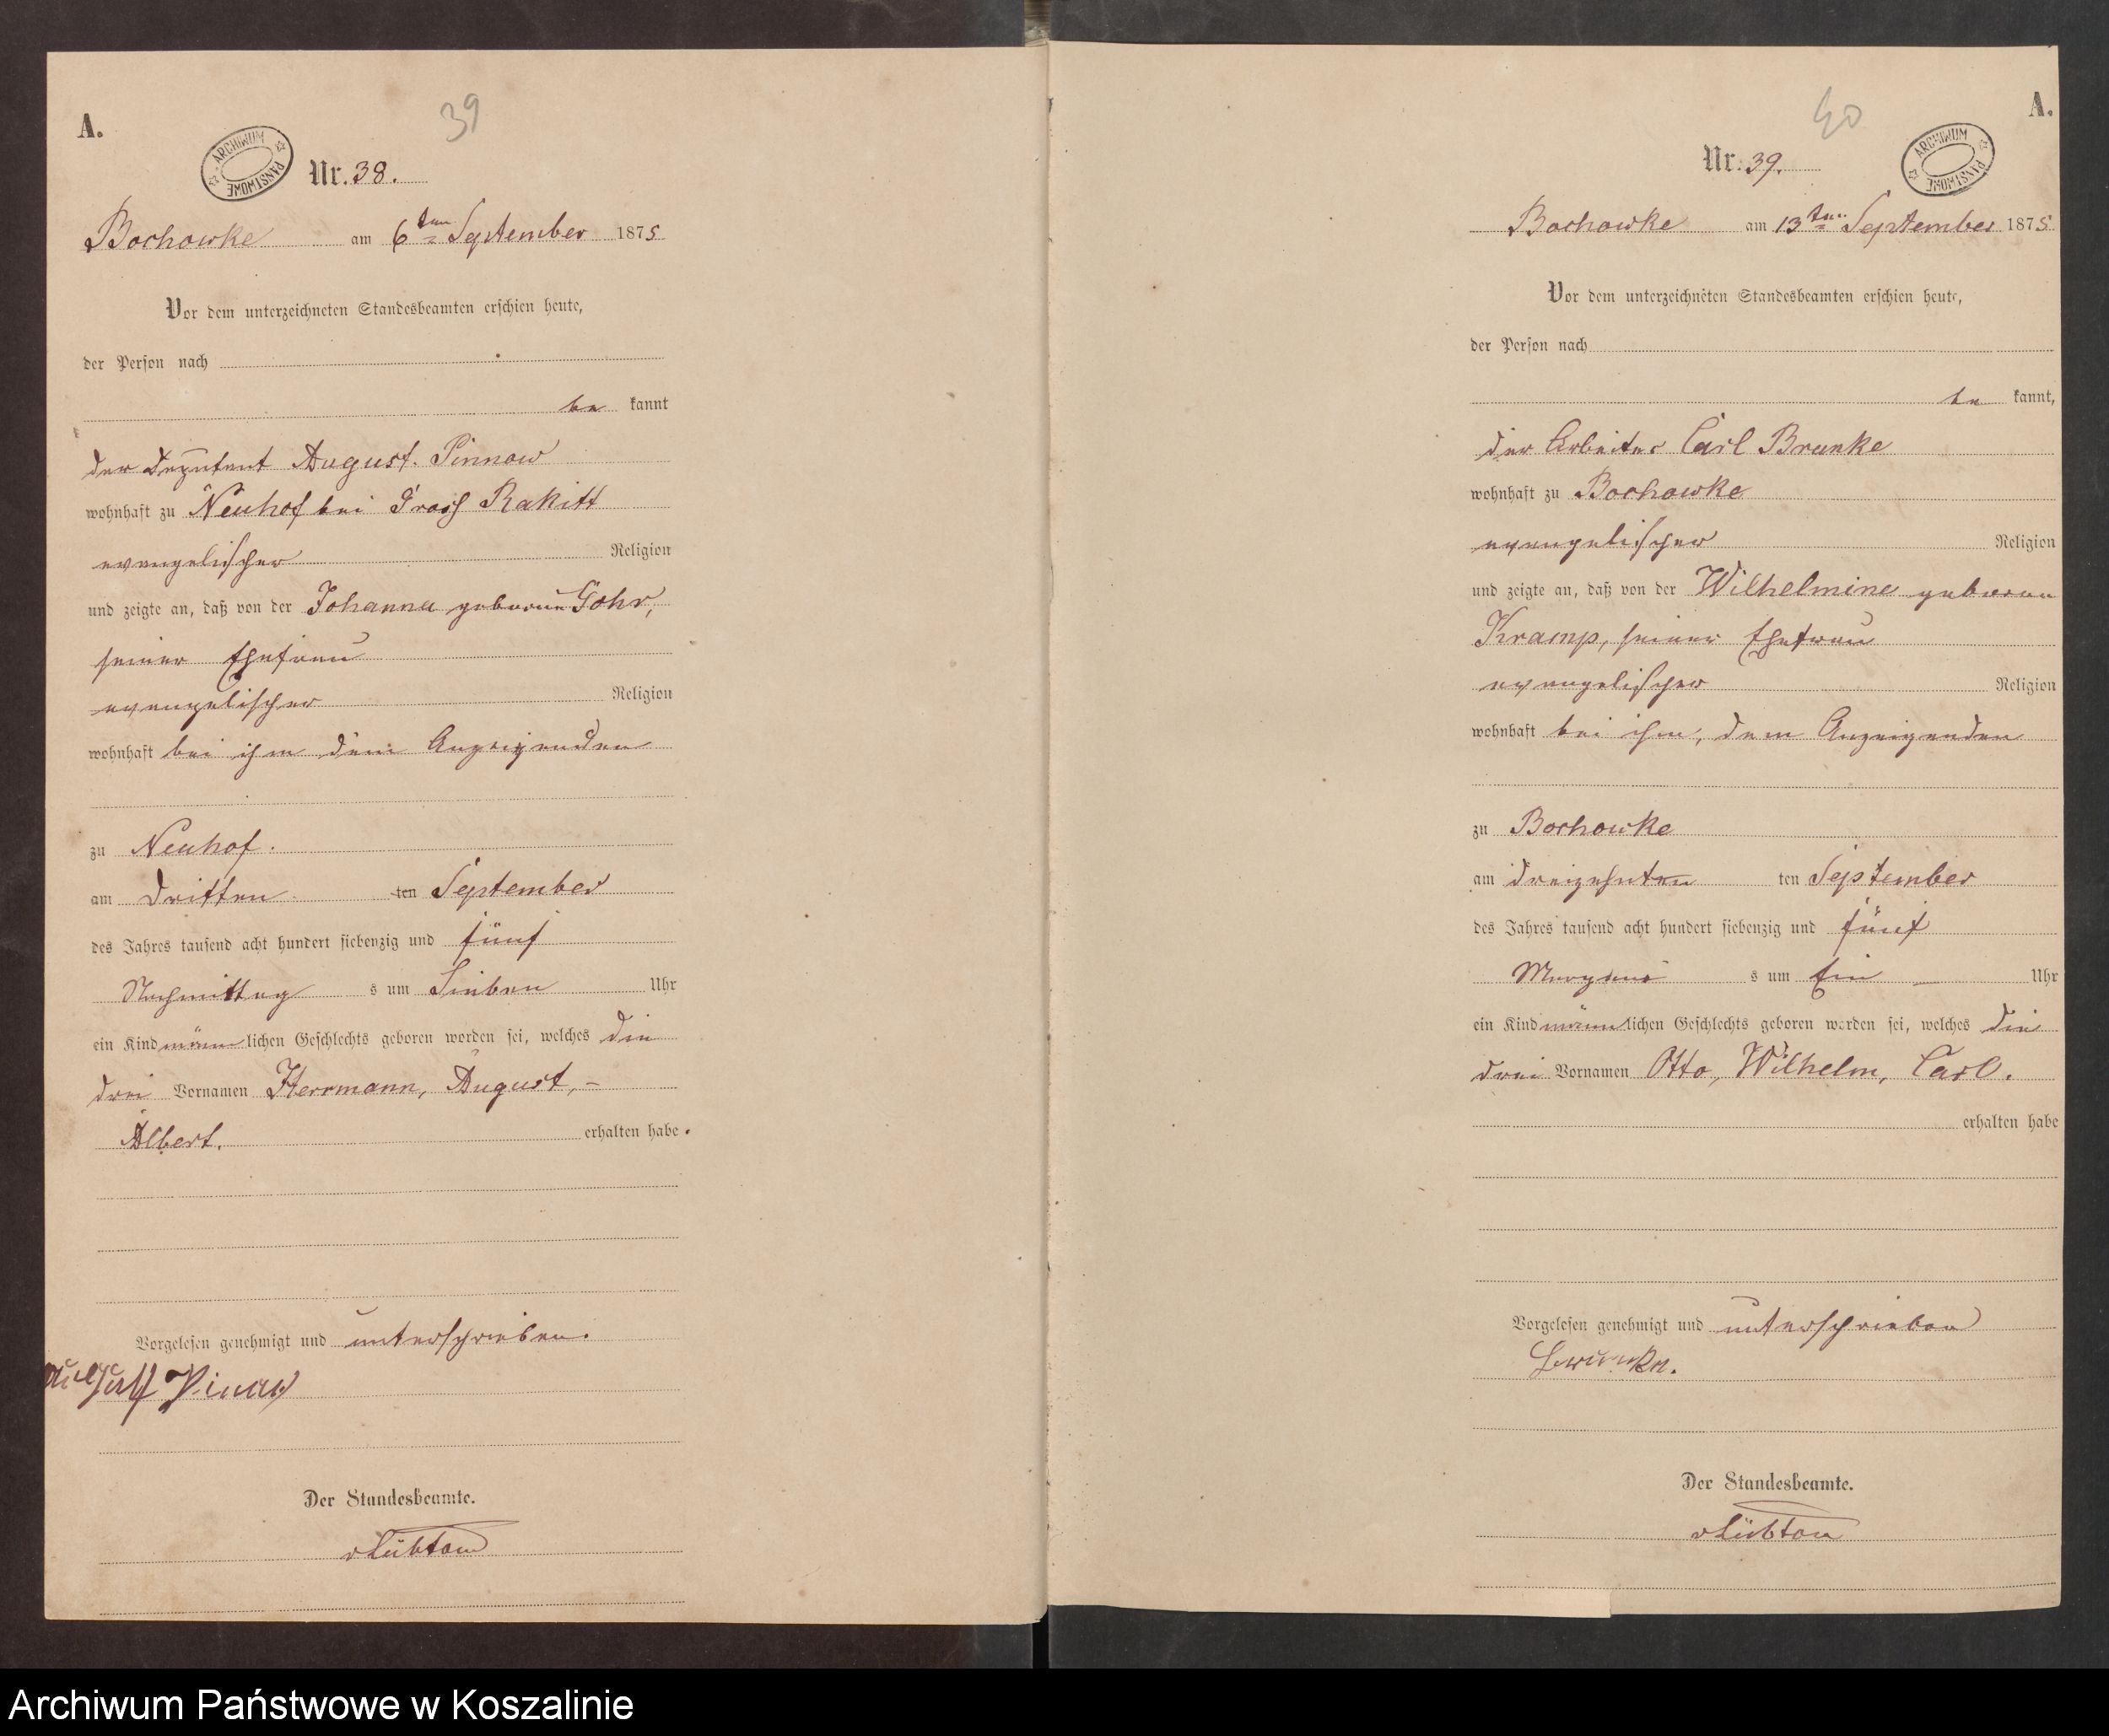 39
A.
ARCHIWUM PAŃSTWOWE
Nr. 38.
Bochowke am 6ten September 1875
Vor dem unterzeichneten Standesbeamten erschien heute,
der Person nach
be kannt
der Deputent August Pinnow
wohnhaft zu Neuhof bei Gross Rakitt
evangelischer Religion
und zeigte an, daß von der Johanna geborne Gohr,
seiner Ehefrau
evangelischer Religion
wohnhaft bei ihm dem Anzeigenden
zu Neuhof.
am dritten ten September
des Jahres tausend acht hundert siebenzig und fünf
Nachmittag s um Sieben Uhr
ein Kind männlichen Geschlechts geboren worden sei, welches die
drei Vornamen Herrmann, August, -
Albert. erhalten habe.
Vorgelesen genehmigt und unterschrieben.
August Pinow
Der Standesbeamte.
vLübtow
40
A.
Nr. 39.
ARCHIWUM PAŃSTWOWE
Bochowke am 13ten September 1875
Vor dem unterzeichneten Standesbeamten erschien heute,
der Person nach
be kannt,
der Arbeiter Carl Brunke
wohnhaft zu Bochowke
evangelischer Religion
und zeigte an, daß von der Wilhelmine geboren
Kramp, seiner Ehefrau
evangelischer Religion
wohnhaft bei ihm, dem Anzeigenden
zu Bochowke
am dreizehnten ten September
des Jahres tausend acht hundert siebenzig und fünf
Morgens s um Ein Uhr
ein Kind männlichen Geschlechts geboren worden sei, welches die
drei Vornamen Otto, Wilhelm, Carl.
erhalten habe
Vorgelesen genehmigt und unterschrieben
Brunke.
Der Standesbeamte.
vLübtow
Archiwum Państwowe w Koszalinie